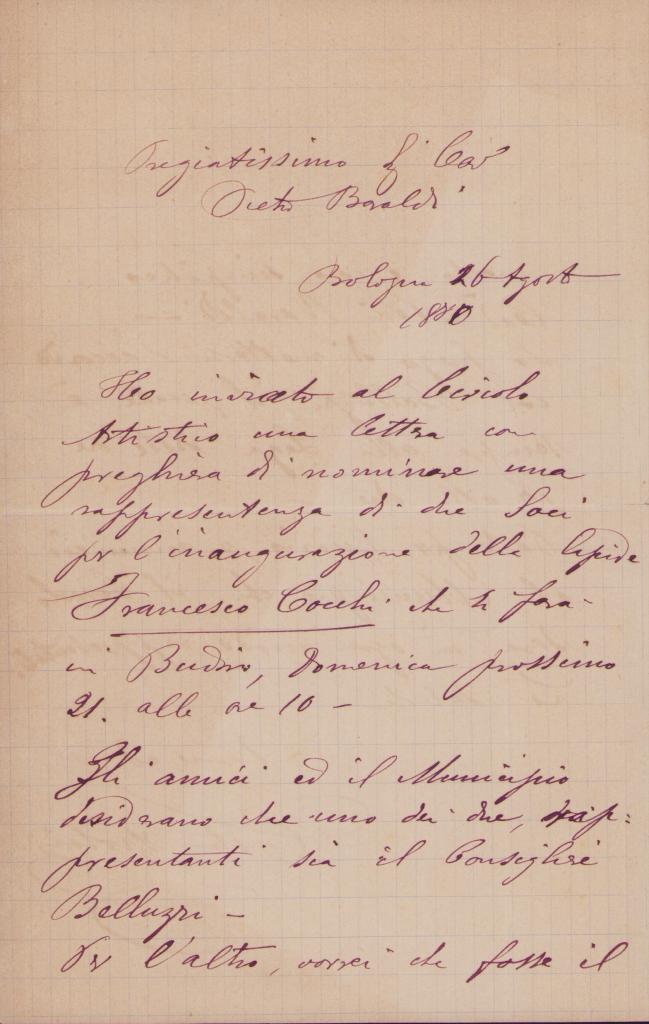 Pregiatissimo Sig Cav
Pietro Baraldi
Bologna 26 Agosto
1880
Ho inviato al Circolo
Artistico una lettera con
preghiera di nominare una
rappresentenza di due Soci
per l'inaugurazione della lapide
Francesco Cocchi che si farà
in Budrio, Domenica prossimo
21. alle ore 10 —
Gli amici ed il Municipio
desiderano che uno dei due, rap=
presentanti sia il Consigliere
Belluzzi —
Per l'altro, vorrei che fosse il